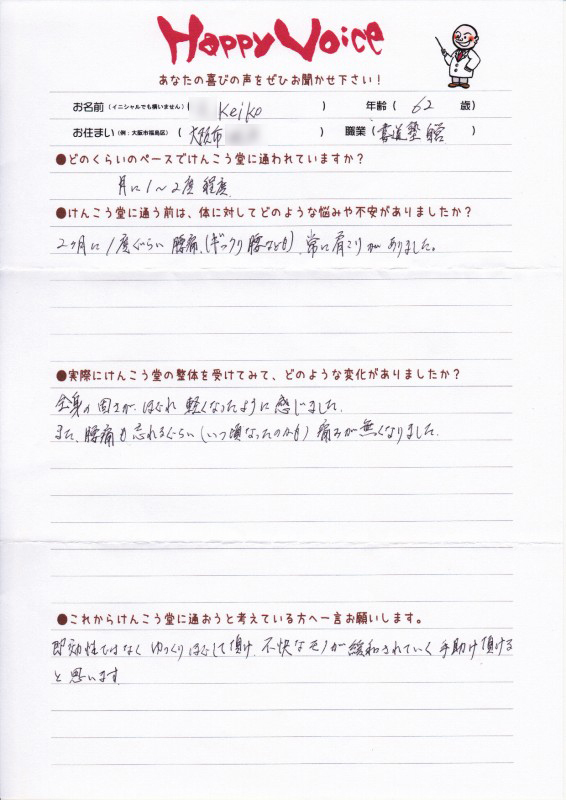 Happy Voice
あなたの喜びの声をぜひお聞かせ下さい！
お名前（イニシャルでも構いません）（ Keiko ） 年齢（ 62 歳）
お住まい（例：大阪市福島区）（ 大阪市 ） 職業（ 書道塾 経営 ）
●どのくらいのペースでけんこう堂に通われていますか？
月に1～2度程度
●けんこう堂に通う前は、体に対してどのような悩みや不安がありましたか？
2ヶ月に1度ぐらい腰痛、（ぎっくり腰なども）、常に肩こりがありました。
●実際にけんこう堂の整体を受けてみて、どのような変化がありましたか？
全身の固さが、ほぐれ軽くなったように感じました。
また、腰痛も忘れるぐらい（いつ頃なったのかも）痛みが無くなりました。
●これからけんこう堂に通おうと考えている方へ一言お願いします。
即効性ではなくゆっくりほぐして頂け、不快なモノが緩和されていく手助け頂ける
と思います